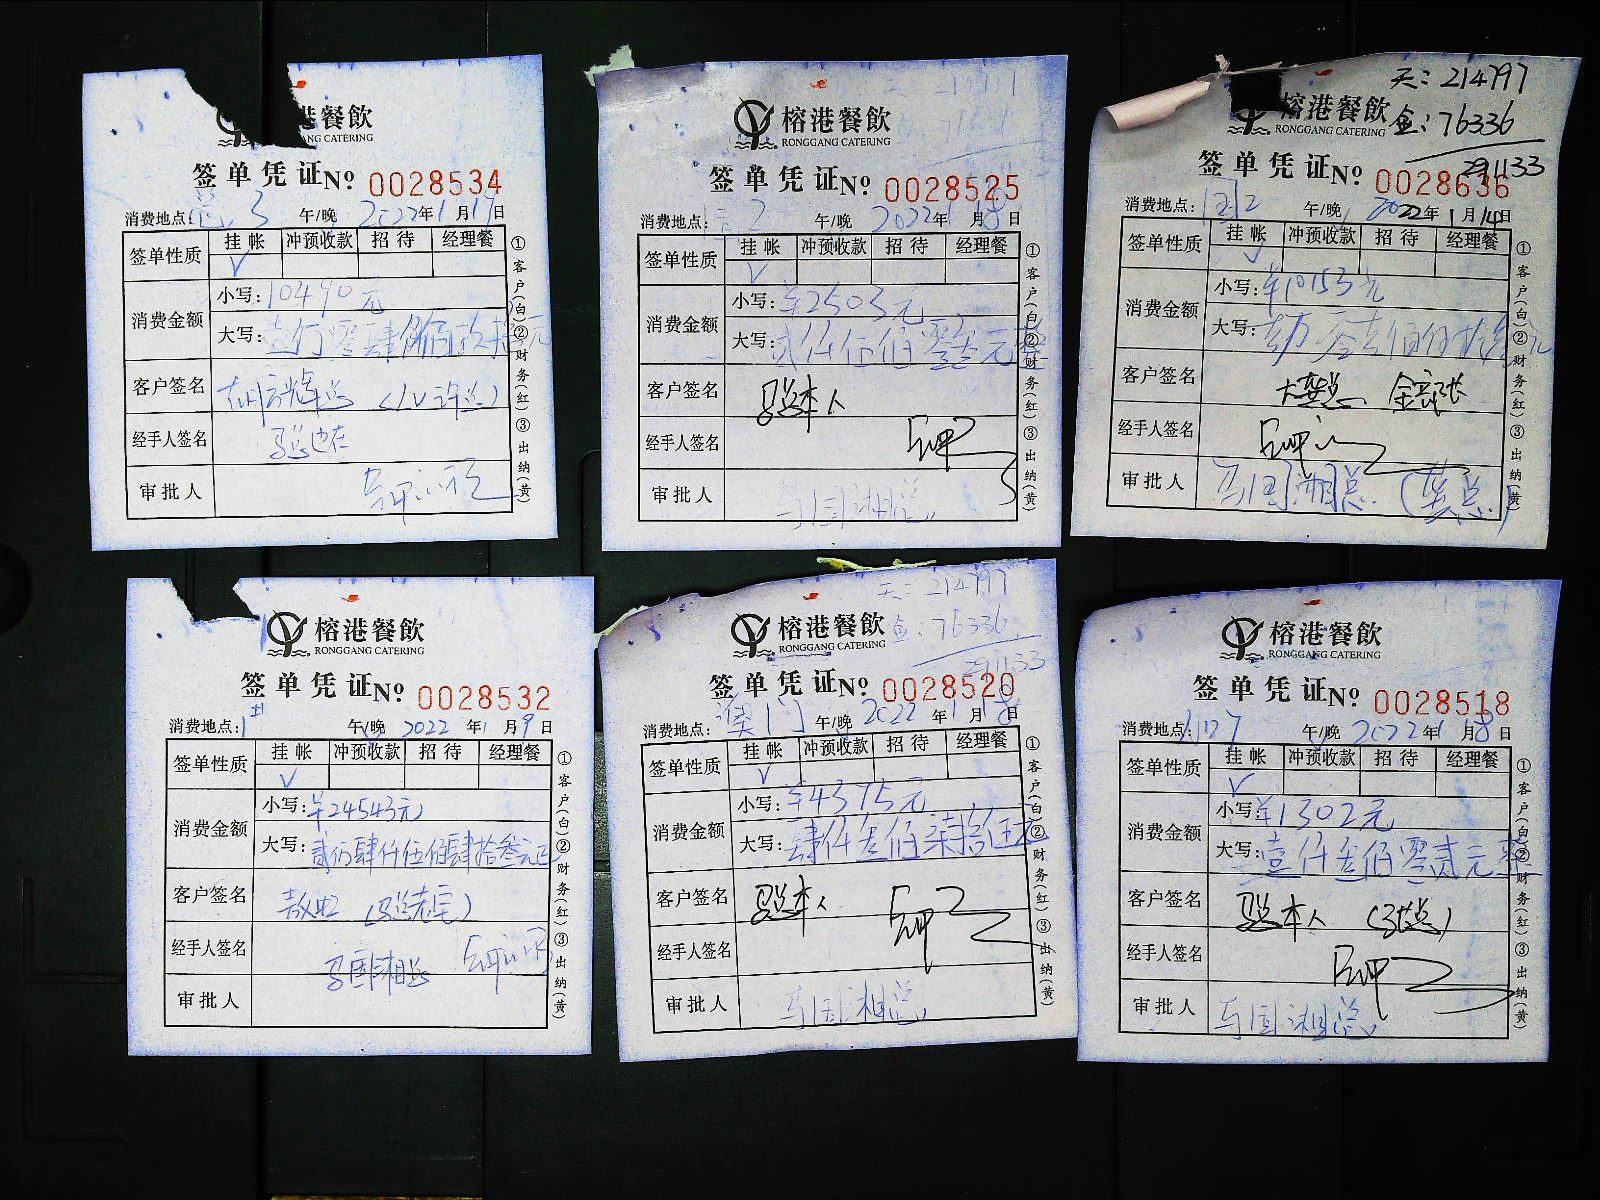 港餐飲
GANG CATERING
签单凭证 No 0028534
消费地点: 总3 午/晚 2022年1月19日
签单性质 挂帐 冲预收款 招待 经理餐
√
消费金额 小写: 10490元
大写:
客户签名
经手人签名
审批人
①客户(白)②财务(红)③出纳(黄)
榕港餐飲
RONGGANG CATERING
签单凭证 No 0028525
消费地点: 2 午/晚 2022年1月18日
签单性质 挂帐 冲预收款 招待 经理餐
√
消费金额 小写: ¥2503元
大写: 贰仟伍佰零叁元整
客户签名 马总本人
经手人签名
审批人 马国湘总
①客户(白)②财务(红)③出纳(黄)
天: 214797
金: 76336
291133
榕港餐飲
RONGGANG CATERING
签单凭证 No 0028636
消费地点: 午/晚 2022年1月14日
签单性质 挂帐 冲预收款 招待 经理餐
√
消费金额 小写: ¥10153元
大写:
客户签名
经手人签名
审批人 马国湘总
①客户(白)②财务(红)③出纳(黄)
榕港餐飲
RONGGANG CATERING
签单凭证 No 0028532
消费地点: 1# 午/晚 2022年1月9日
签单性质 挂帐 冲预收款 招待 经理餐
√
消费金额 小写: ¥24543元
大写: 贰万肆仟伍佰肆拾叁元正
客户签名
经手人签名 马国湘总
审批人
①客户(白)②财务(红)③出纳(黄)
天: 214797
金: 76336
291133
榕港餐飲
RONGGANG CATERING
签单凭证 No 0028520
消费地点: 澳门 午/晚 2022年1月18日
签单性质 挂帐 冲预收款 招待 经理餐
√
消费金额 小写: ¥4375元
大写: 肆仟叁佰柒拾伍元
客户签名 马总本人
经手人签名
审批人 马国湘总
①客户(白)②财务(红)③出纳(黄)
榕港餐飲
RONGGANG CATERING
签单凭证 No 0028518
消费地点: 午/晚 2022年1月18日
签单性质 挂帐 冲预收款 招待 经理餐
√
消费金额 小写: ¥1302元
大写: 壹仟叁佰零贰元整
客户签名 马总本人
经手人签名
审批人 马国湘总
①客户(白)②财务(红)③出纳(黄)